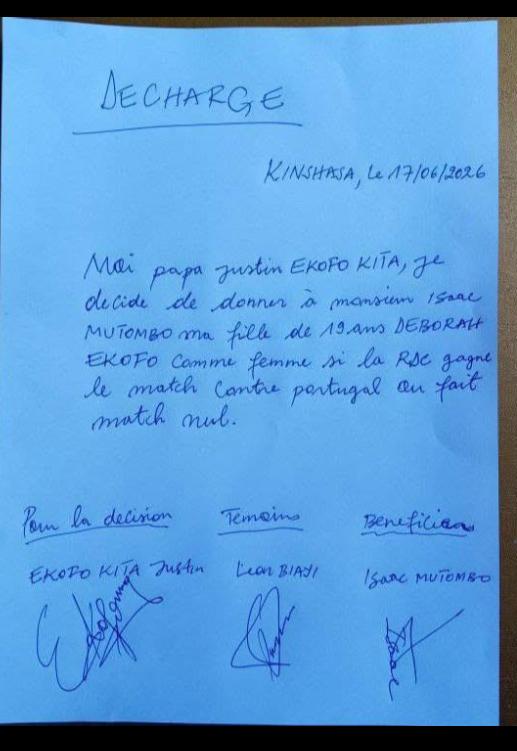 DECHARGE
KINSHASA, Le 17/06/2026
Moi papa Justin EKOFO KITA, je
decide de donner à monsieur Isaac
MUTOMBO ma fille de 19 ans DEBORAH
EKOFO comme femme si la RDC gagne
le match contre portugal ou fait
match nul.
Pour la decision Temoins Beneficiaire
EKOFO KITA Justin Leon BIAYI Isaac MUTOMBO
Isaac